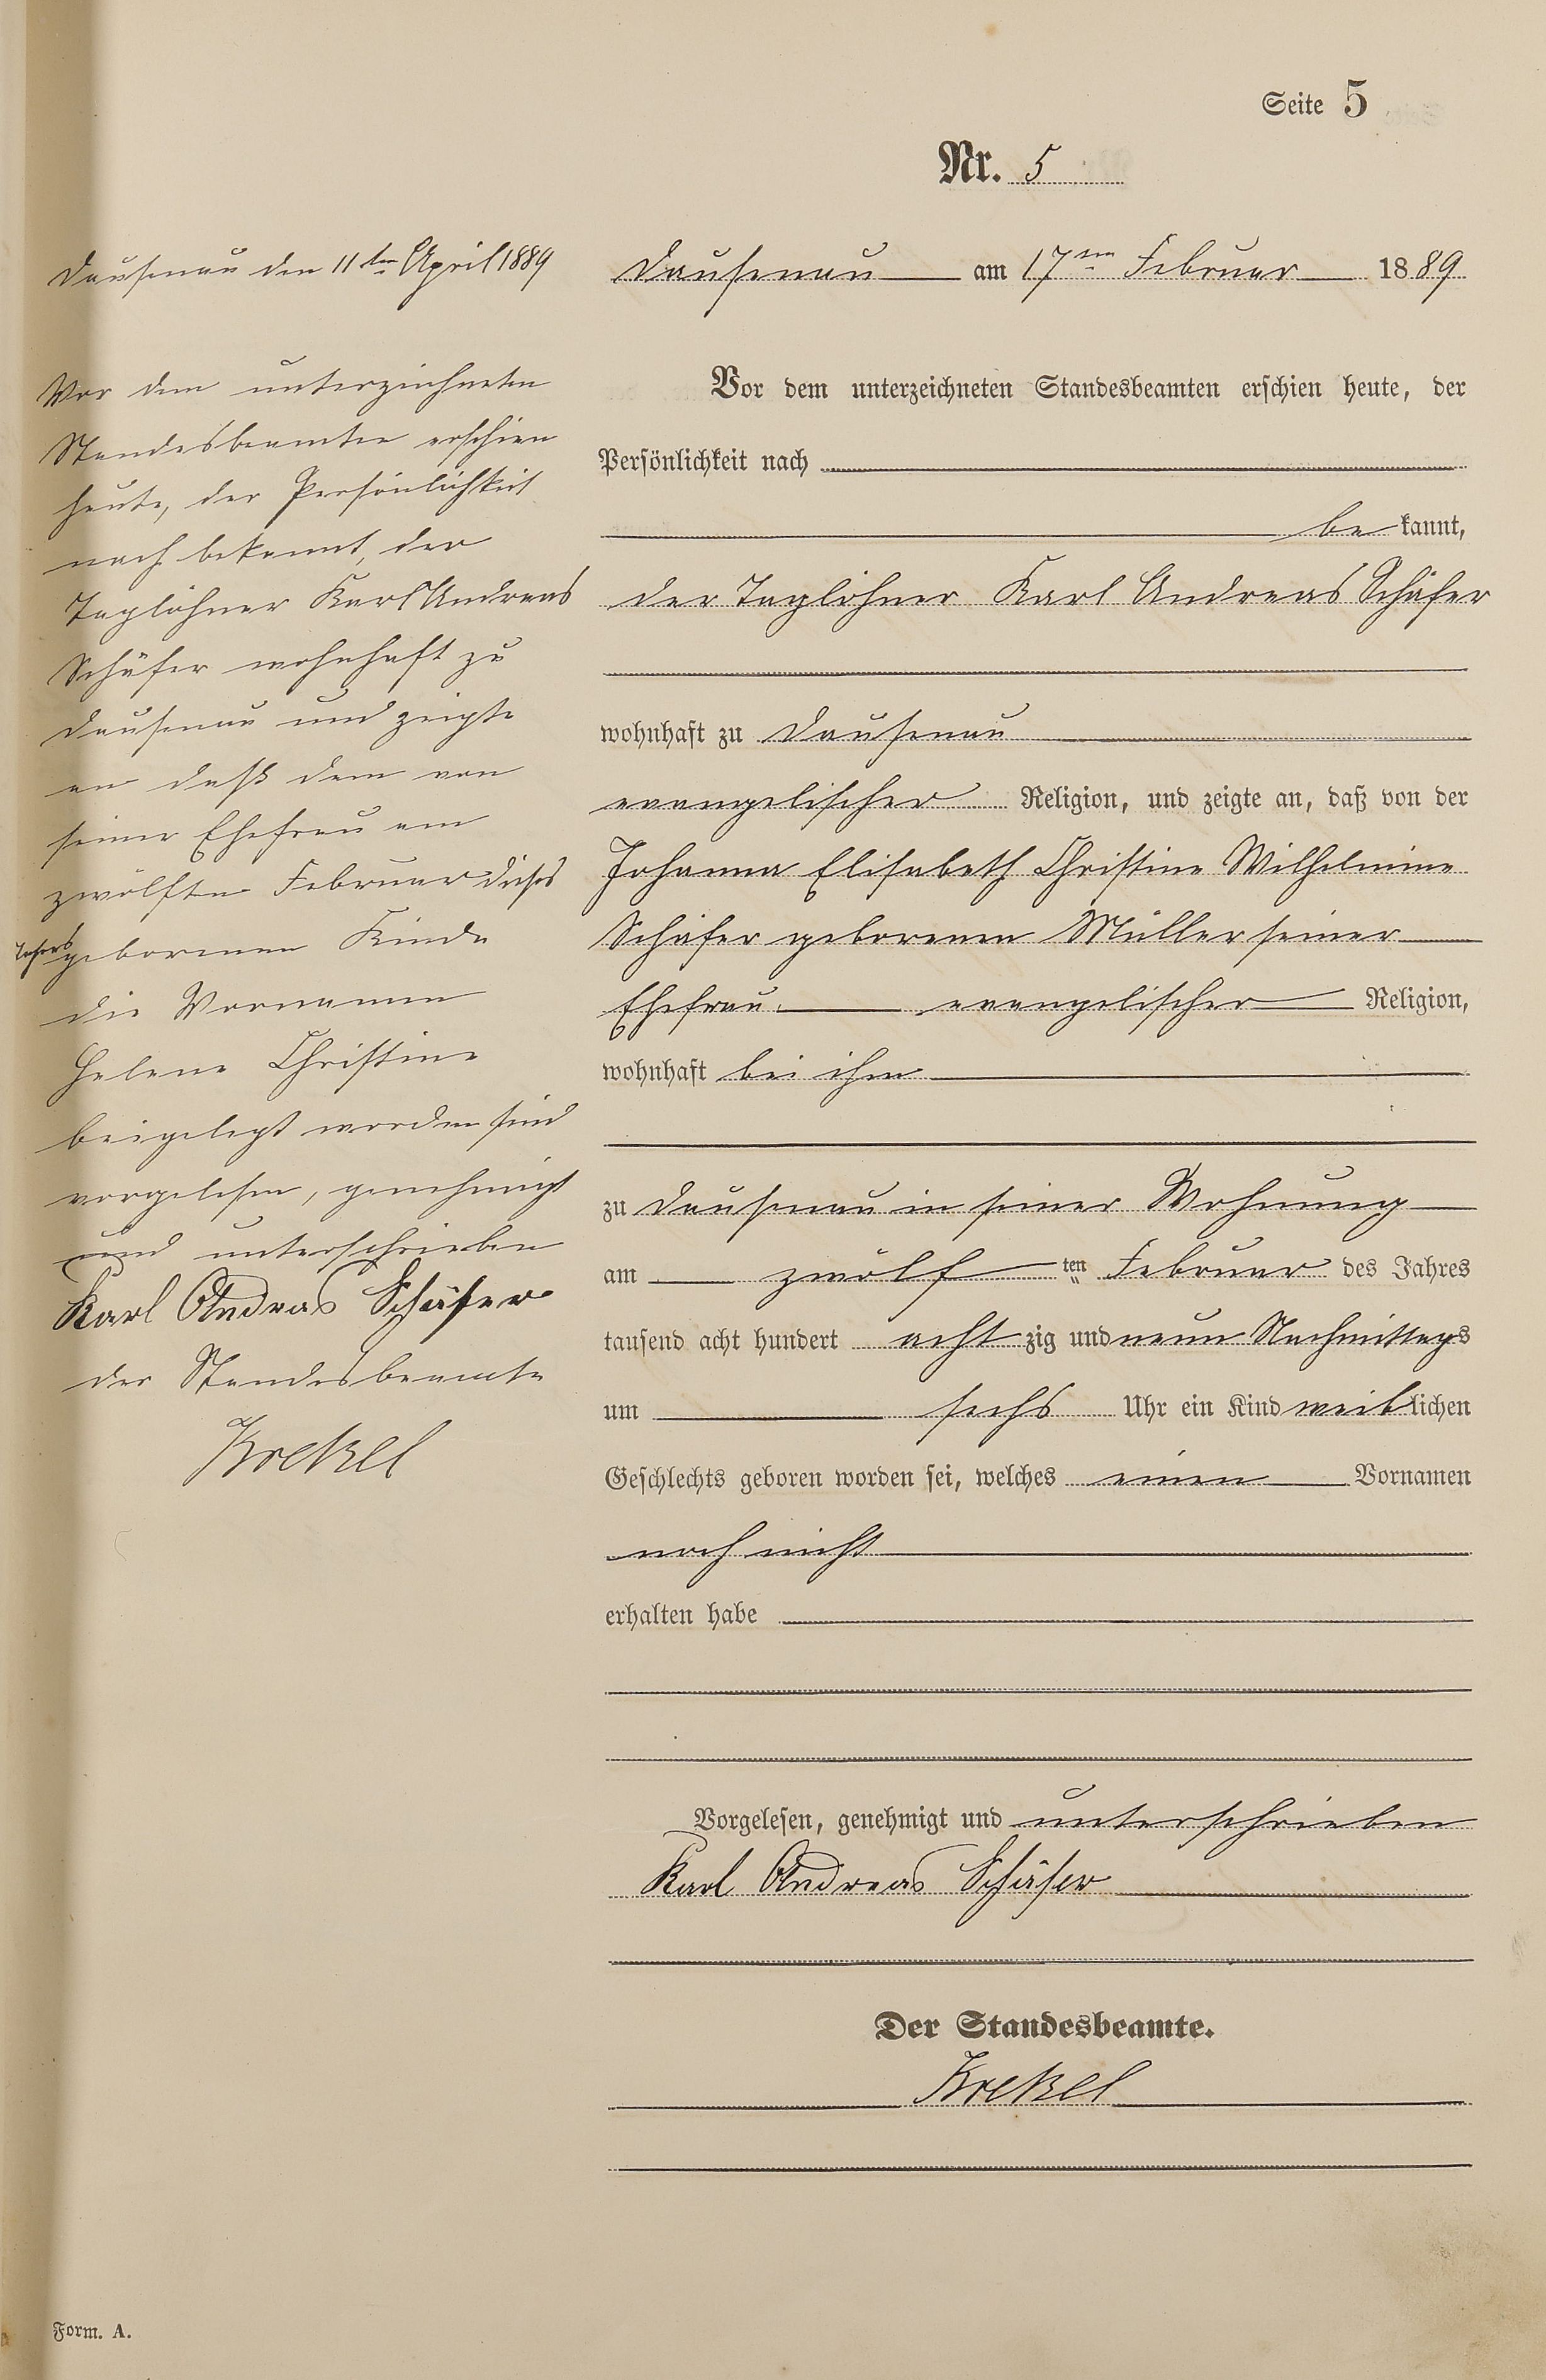 Seite 5
Nr. 5
Dausenau den 11ten April 1889
Vor dem unterzeichneten
Standesbeamten erschien
heute, der Persönlichkeit
nach bekannt, der
Taglöhner Karl Andreas
Schäfer wohnhaft zu
Dausenau und zeigte
an daß dem von
seiner Ehefrau am
zwölften Februar dieses
Jahres geborenen Kinde
die Vornamen
Helene Christine
beigelegt worden sind
vorgelesen, genehmigt
und unterschrieben
Karl Andreas Schäfer
der Standesbeamte
Krekel
Dausenau am 17ten Februar 1889
Vor dem unterzeichneten Standesbeamten erschien heute, der
Persönlichkeit nach
bekannt,
der Taglöhner Karl Andreas Schäfer
wohnhaft zu Dausenau
evangelischer Religion, und zeigte an, daß von der
Johanna Elisabeth Christine Wilhelmine
Schäfer geborenen Müller seiner
Ehefrau evangelischer Religion,
wohnhaft bei ihm
zu Dausenau in seiner Wohnung
am zwölften Februar des Jahres
tausend acht hundert achtzig und neun Nachmittags
um sechs Uhr ein Kind weiblichen
Geschlechts geboren worden sei, welches einen Vornamen
noch nicht
erhalten habe
Vorgelesen, genehmigt und unterschrieben
Karl Andreas Schäfer
Der Standesbeamte.
Krekel
Form. A.